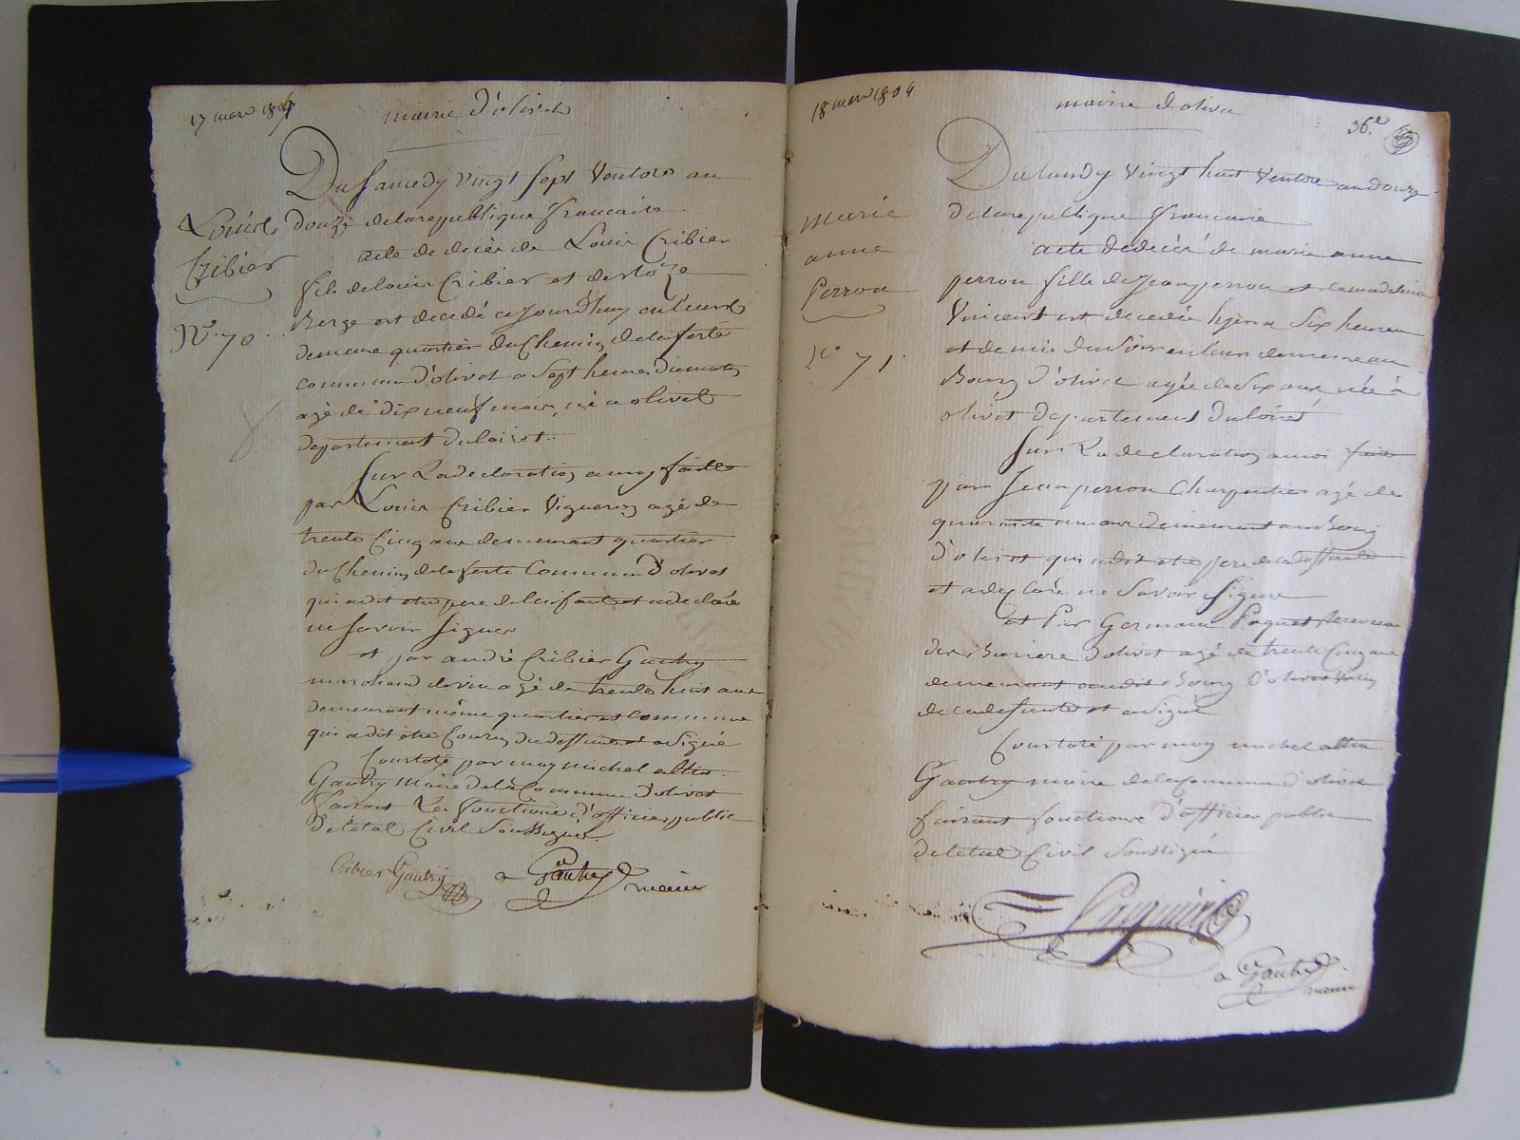 17 mars 1804
mairie d'olivet
Du Samedy vingt sept Ventose an
douze de la republique francaise
Louis
Cribier
N.° 70.
acte de decès de Louis Cribier
fils de louis Cribier et de
Berge est decedé ce jourd'huy en leurs
demeure quartier du Chemin de la ferté
commune d'olivet a Sept heures du matin
agé de dix neuf mois, né a olivet
departement du loiret..
Sur La declaration a moy faitte
par Louis Cribier Vigneron agé de
trente Cinq ans demeurant quartier
du Chemin de la ferté Commune D'olivet
qui a dit etre pere de l'enfant et a declaré
ne Savoir Signer
et par andré Cribier Gautry
marchand de vin agé de trente huit ans
demeurant même quartier et commune
qui a dit être Cousin du deffunt et a Signé
Constaté par moy michel
Gautry Maire de la Commune D'olivet
faisant Les fonctions d'officier public
De l'etat Civil Soussigner.
Cribier Gautry
a Gautry
maire
18 mars 1804
mairie d'olivet
36.e
Du lundy Vingt huit Ventose an douze
de la republique francaise
Marie
anne
Perron
N.° 71.
acte de decés de marie anne
perron fille de Jean perron et de madeleine
Vincent est decedée hyer a Six heures
et demie du Soir en leur demeure au
Bourg d'olivet agée de Six ans née à
olivet departement du loiret
Sur La declaration a moi faite
par Jean perron Charpentier agé de
quarante un ans demeurant au Bourg
d'olivet qui a dit etre pere de la deffunte
et a declaré ne Savoir Signer
et Par Germain Paquet Receveur
de la Barriere D'olivet agé de trente Cinq ans
demeurant audit Bourg D'olivet voisin
de la defunte et a Signé
Constaté par moy michel
Gautry maire de la Commune d'olivet
faisant fonctions d'officier public
de letat Civil Soussigné
a Gautry
maire